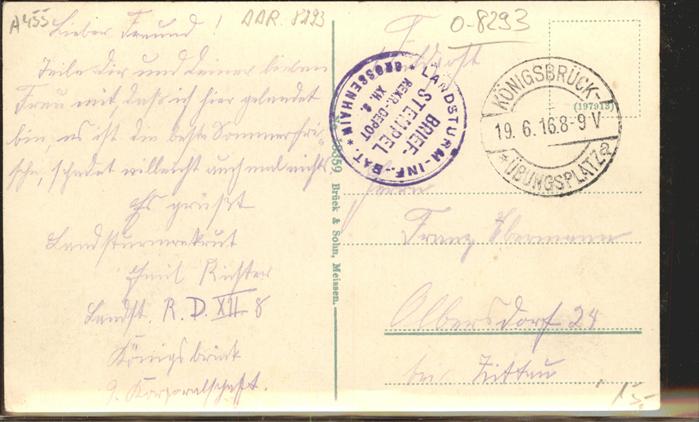 A455
AAR. 8293
O-8293
Lieber Freund!
Teile dir und deiner lieben
Frau mit, daß ich hier gelandet
bin, es ist die beste Sommerfri-
sche, schadet vielleicht auch mal nicht
Es grüßt
Landsturmrekrut
Emil Richter
Landst. R. D. XII 8
Königsbrück
9. Korporalschaft.
59, Brück & Sohn, Meissen.
Feldpost
LANDSTURM-INF.-BAT.
GROSSENHAIN
XII. 8.
REKR.-DEPOT
BRIEF-
STEMPEL
KÖNIGSBRÜCK-
(197913)
19. 6. 16. 8-9 V
*ÜBUNGSPLATZ a
Herrn
Franz Ebermann
Olbersdorf 24
bei Zittau